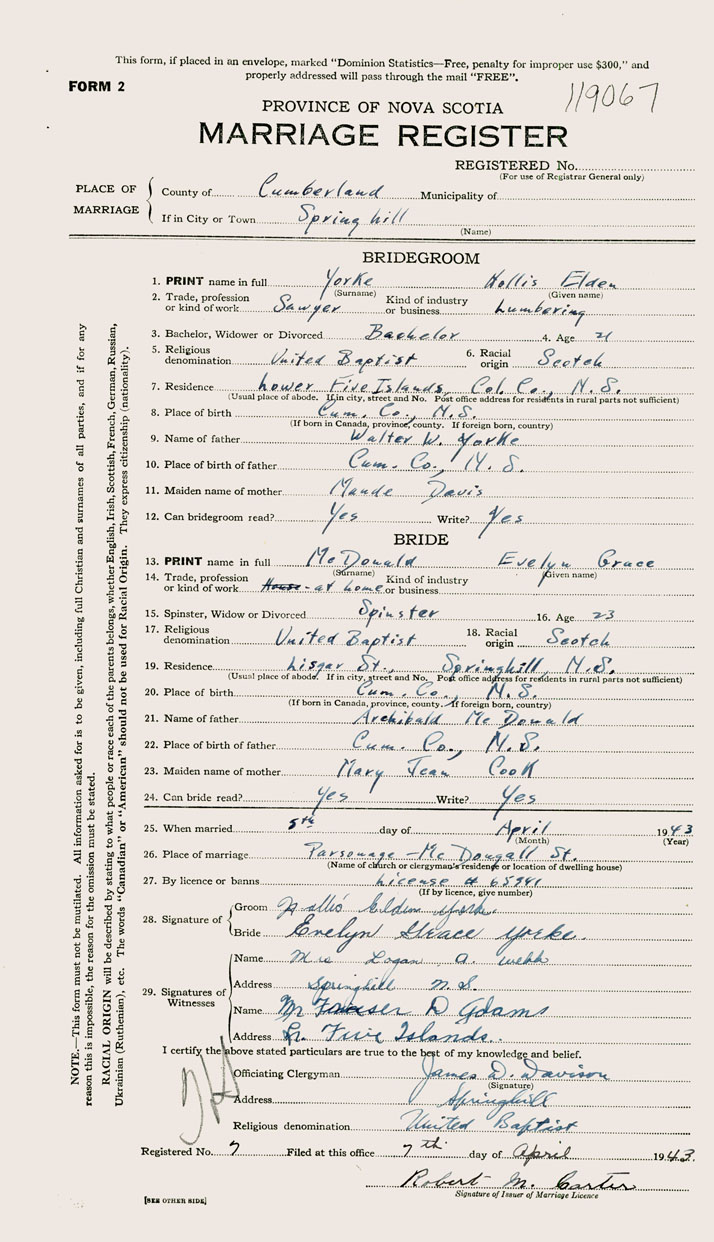 This form, if placed in an envelope, marked "Dominion Statistics—Free, penalty for improper use $300," and
properly addressed will pass through the mail "FREE".
FORM 2
119067
PROVINCE OF NOVA SCOTIA
MARRIAGE REGISTER
REGISTERED No.
(For use of Registrar General only)
PLACE OF MARRIAGE
County of Cumberland Municipality of
If in City or Town Springhill
(Name)
BRIDEGROOM
1. PRINT name in full Yorke Hollis Elden
(Surname) (Given name)
2. Trade, profession or kind of work Sawyer Kind of industry or business Lumbering
3. Bachelor, Widower or Divorced Bachelor 4. Age 21
5. Religious denomination United Baptist 6. Racial origin Scotch
7. Residence Lower Five Islands, Col. Co., N.S.
(Usual place of abode. If in city, street and No. Post office address for residents in rural parts not sufficient)
8. Place of birth Cum. Co., N.S.
(If born in Canada, province, county. If foreign born, country)
9. Name of father Walter W. Yorke
10. Place of birth of father Cum. Co., N.S.
11. Maiden name of mother Maude Davis
12. Can bridegroom read? Yes Write? Yes
BRIDE
13. PRINT name in full McDonald Evelyn Grace
(Surname) (Given name)
14. Trade, profession or kind of work House - at home Kind of industry or business
15. Spinster, Widow or Divorced Spinster 16. Age 23
17. Religious denomination United Baptist 18. Racial origin Scotch
19. Residence Lisgar St., Springhill, N.S.
(Usual place of abode. If in city, street and No. Post office address for residents in rural parts not sufficient)
20. Place of birth Cum. Co., N.S.
(If born in Canada, province, county. If foreign born, country)
21. Name of father Archibald McDonald
22. Place of birth of father Cum. Co., N.S.
23. Maiden name of mother Mary Jean Cook
24. Can bride read? Yes Write? Yes
25. When married 5th day of April 1943
(Month) (Year)
26. Place of marriage Parsonage - McDougall St.
(Name of church or clergyman's residence or location of dwelling house)
27. By licence or banns License #
(If by licence, give number)
28. Signature of
Groom Hollis Elden Yorke.
Bride Evelyn Grace Yorke.
29. Signatures of Witnesses
Name Mrs Logan A. Webb
Address Springhill N.S.
Name Mr D Adams
Address Lr. Five Islands.
I certify the above stated particulars are true to the best of my knowledge and belief.
Officiating Clergyman James D. Davison
(Signature)
Address Springhill
Religious denomination United Baptist
Registered No. 7 Filed at this office 7th day of April 1943
Robert M. Carter
Signature of Issuer of Marriage Licence
[SEE OTHER SIDE]
NOTE.—This form must not be mutilated. All information asked for is to be given, including full Christian and surnames of all parties, and if for any
reason this is impossible, the reason for the omission must be stated.
RACIAL ORIGIN will be described by stating to what people or race each of the parents belongs, whether English, Irish, Scottish, French, German, Russian,
Ukrainian (Ruthenian), etc. The words "Canadian" or "American" should not be used for Racial Origin. They express citizenship (nationality).